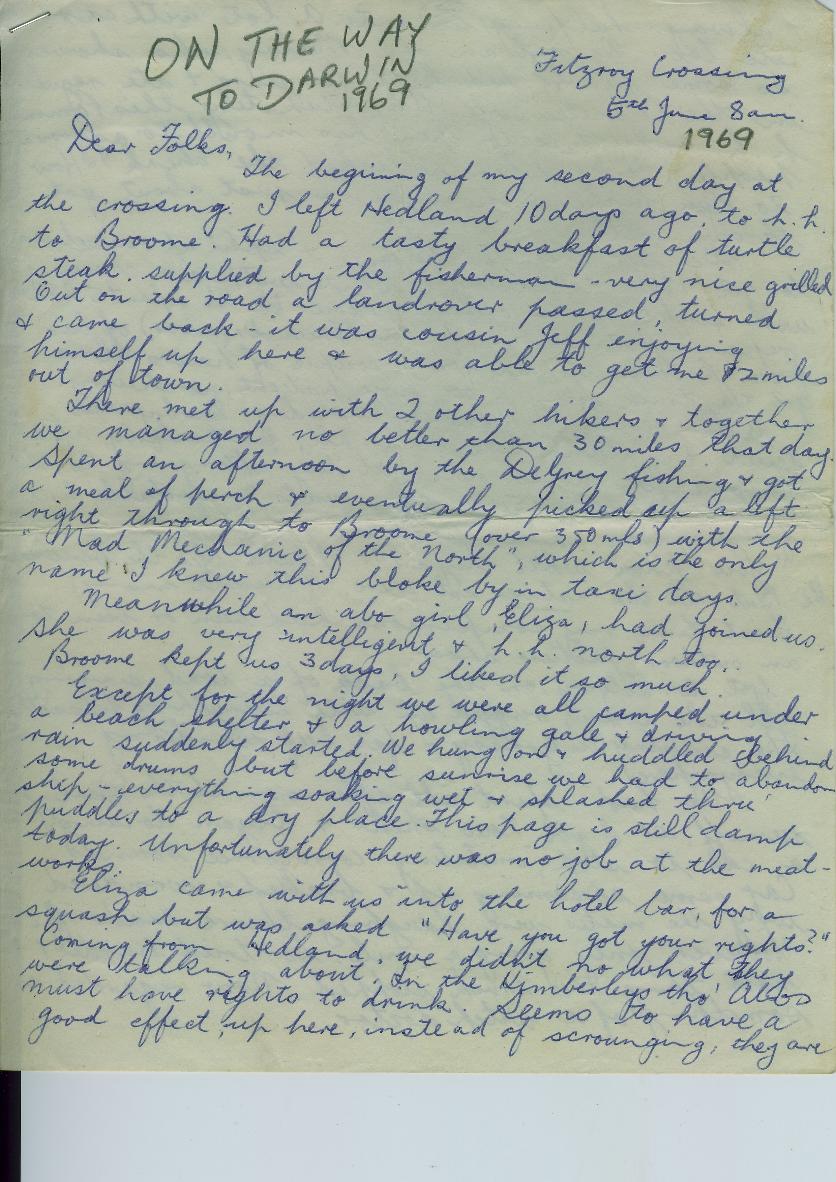 ON THE WAY
TO DARWIN
1969
Fitzroy Crossing
5th June 8am.
1969
Dear Folks,
The begining of my second day at
the crossing. I left Hedland 10 days ago, to h.h.
to Broome. Had a tasty breakfast of turtle
steak. supplied by the fisherman - very nice grilled
Out on the road a landrover passed, turned
& came back - it was cousin Jeff enjoying
himself up here & was able to get me 2 miles
out of town.
There met up with 2 other hikers & together
we managed no better than 30 miles that day.
Spent an afternoon by the DeGrey fishing & got
a meal of perch & eventually picked up a lift
right through to Broome (over 350 mls) with the
"Mad Mechanic of the North", which is the only
name I knew this bloke by in taxi days.
Meanwhile an abo girl, Eliza, had joined us.
She was very intelligent & h.h. north too.
Broome kept us 3 days, I liked it so much.
Except for the night we were all camped under
a beach shelter & a howling gale & driving
rain suddenly started. We hung on & huddled behind
some drums but before sunrise we had to abandon
ship, - everything soaking wet & splashed thru'
puddles to a dry place. This page is still damp
today. Unfortunately there was no job at the meat-
works.
Eliza came with us into the hotel bar, for a
squash but was asked "Have you got your rights?"
Coming from Hedland, we didn't no what they
were talking about. In the Kimberleys tho' Abos
must have rights to drink. Seems to have a
good effect, up here, instead of scrounging, they are